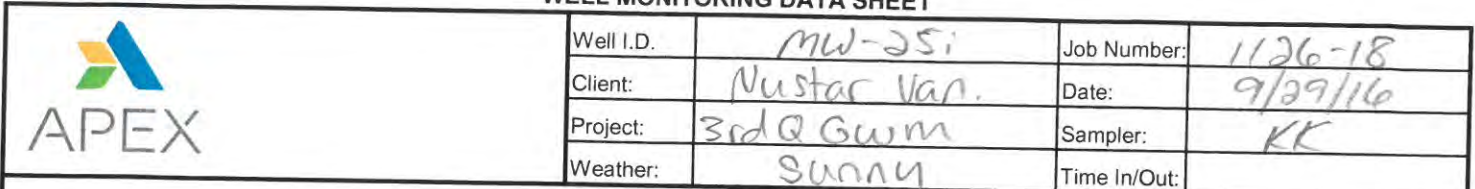 WELL MONITORING DATA SHEET
APEX
Well I.D. MW-25i Job Number: 1126-18
Client: Nustar Van. Date: 9/29/16
Project: 3rd Q GWM Sampler: KK
Weather: Sunny Time In/Out: